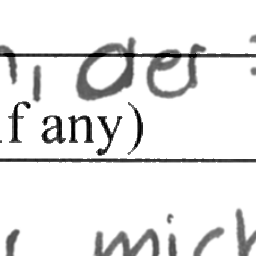 n, der
if any)
mich